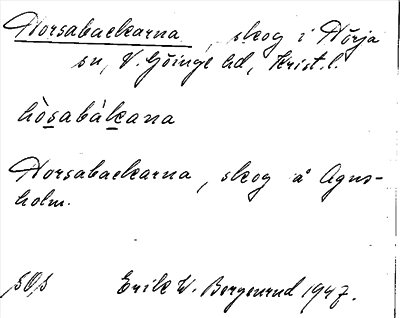 Norsabackarna, skog i Nörja
sn, V. Göinge hd, Krist. l.
hòsabàkana
Norsabackarna, skog å Agns-
holm.
Erik W. Bergenrud 1947.